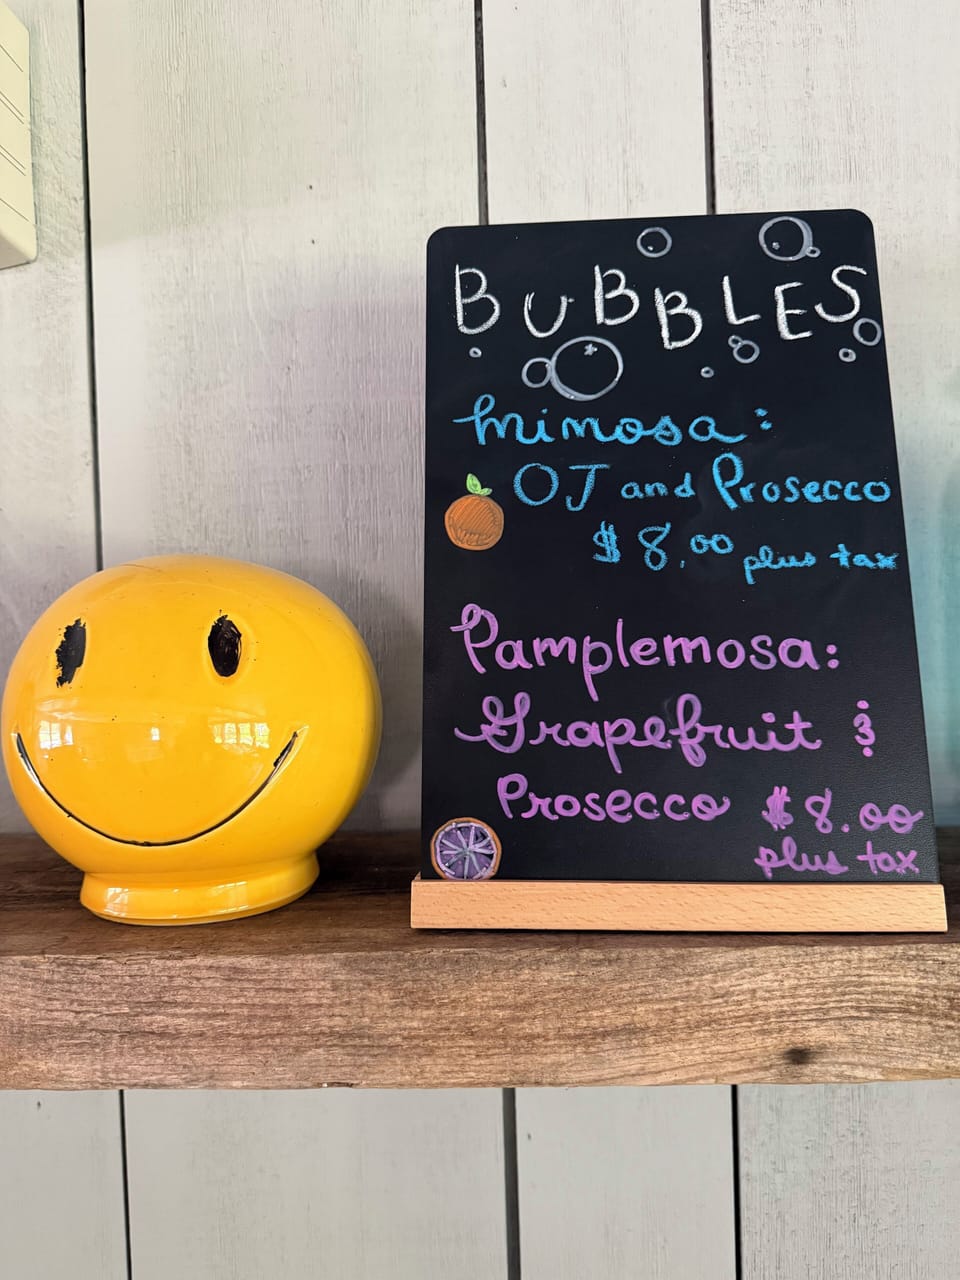 BUBBLES
mimosa:
OJ and Prosecco
$8.00 plus tax
Pamplemosa:
Grapefruit &
Prosecco $8.00
plus tax